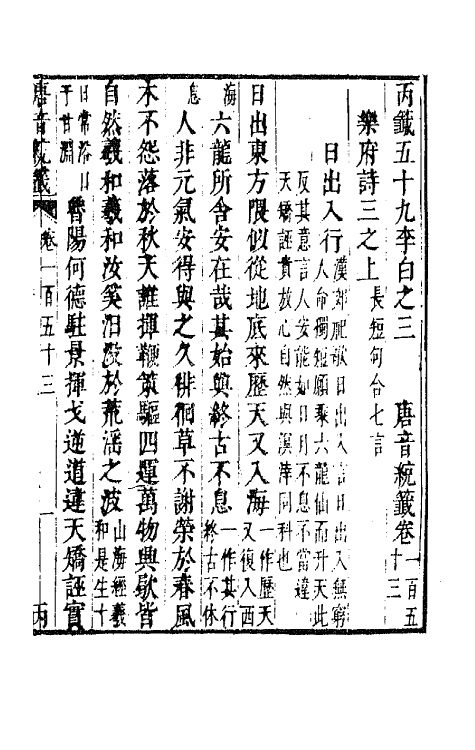 丙籤五十九李白之三 唐音統籤卷一百五十三
樂府詩三之上 長短句合七言
日出入行 漢郊祀歌日出入言日出入無窮人命獨短願乘六龍仙而升天此反其意言人安能如日月不息不當違天矯誣貴放心自然與溟涬同科也
日出東方隈似從地底來歷天又入海 一作歷天又復入西海
六龍所舍安在哉其始與終古不息 一作其行終古不休息
人非元氣安得與之久徘徊草不謝榮於春風
木不怨落於秋天誰揮鞭策驅四運萬物興歇皆
自然羲和羲和汝奚汨沒於荒淫之波 山海經羲和是生十日常浴日于甘淵
魯陽何德駐景揮戈逆道違天矯誣實
唐音統籤 卷一百五十三 一 丙